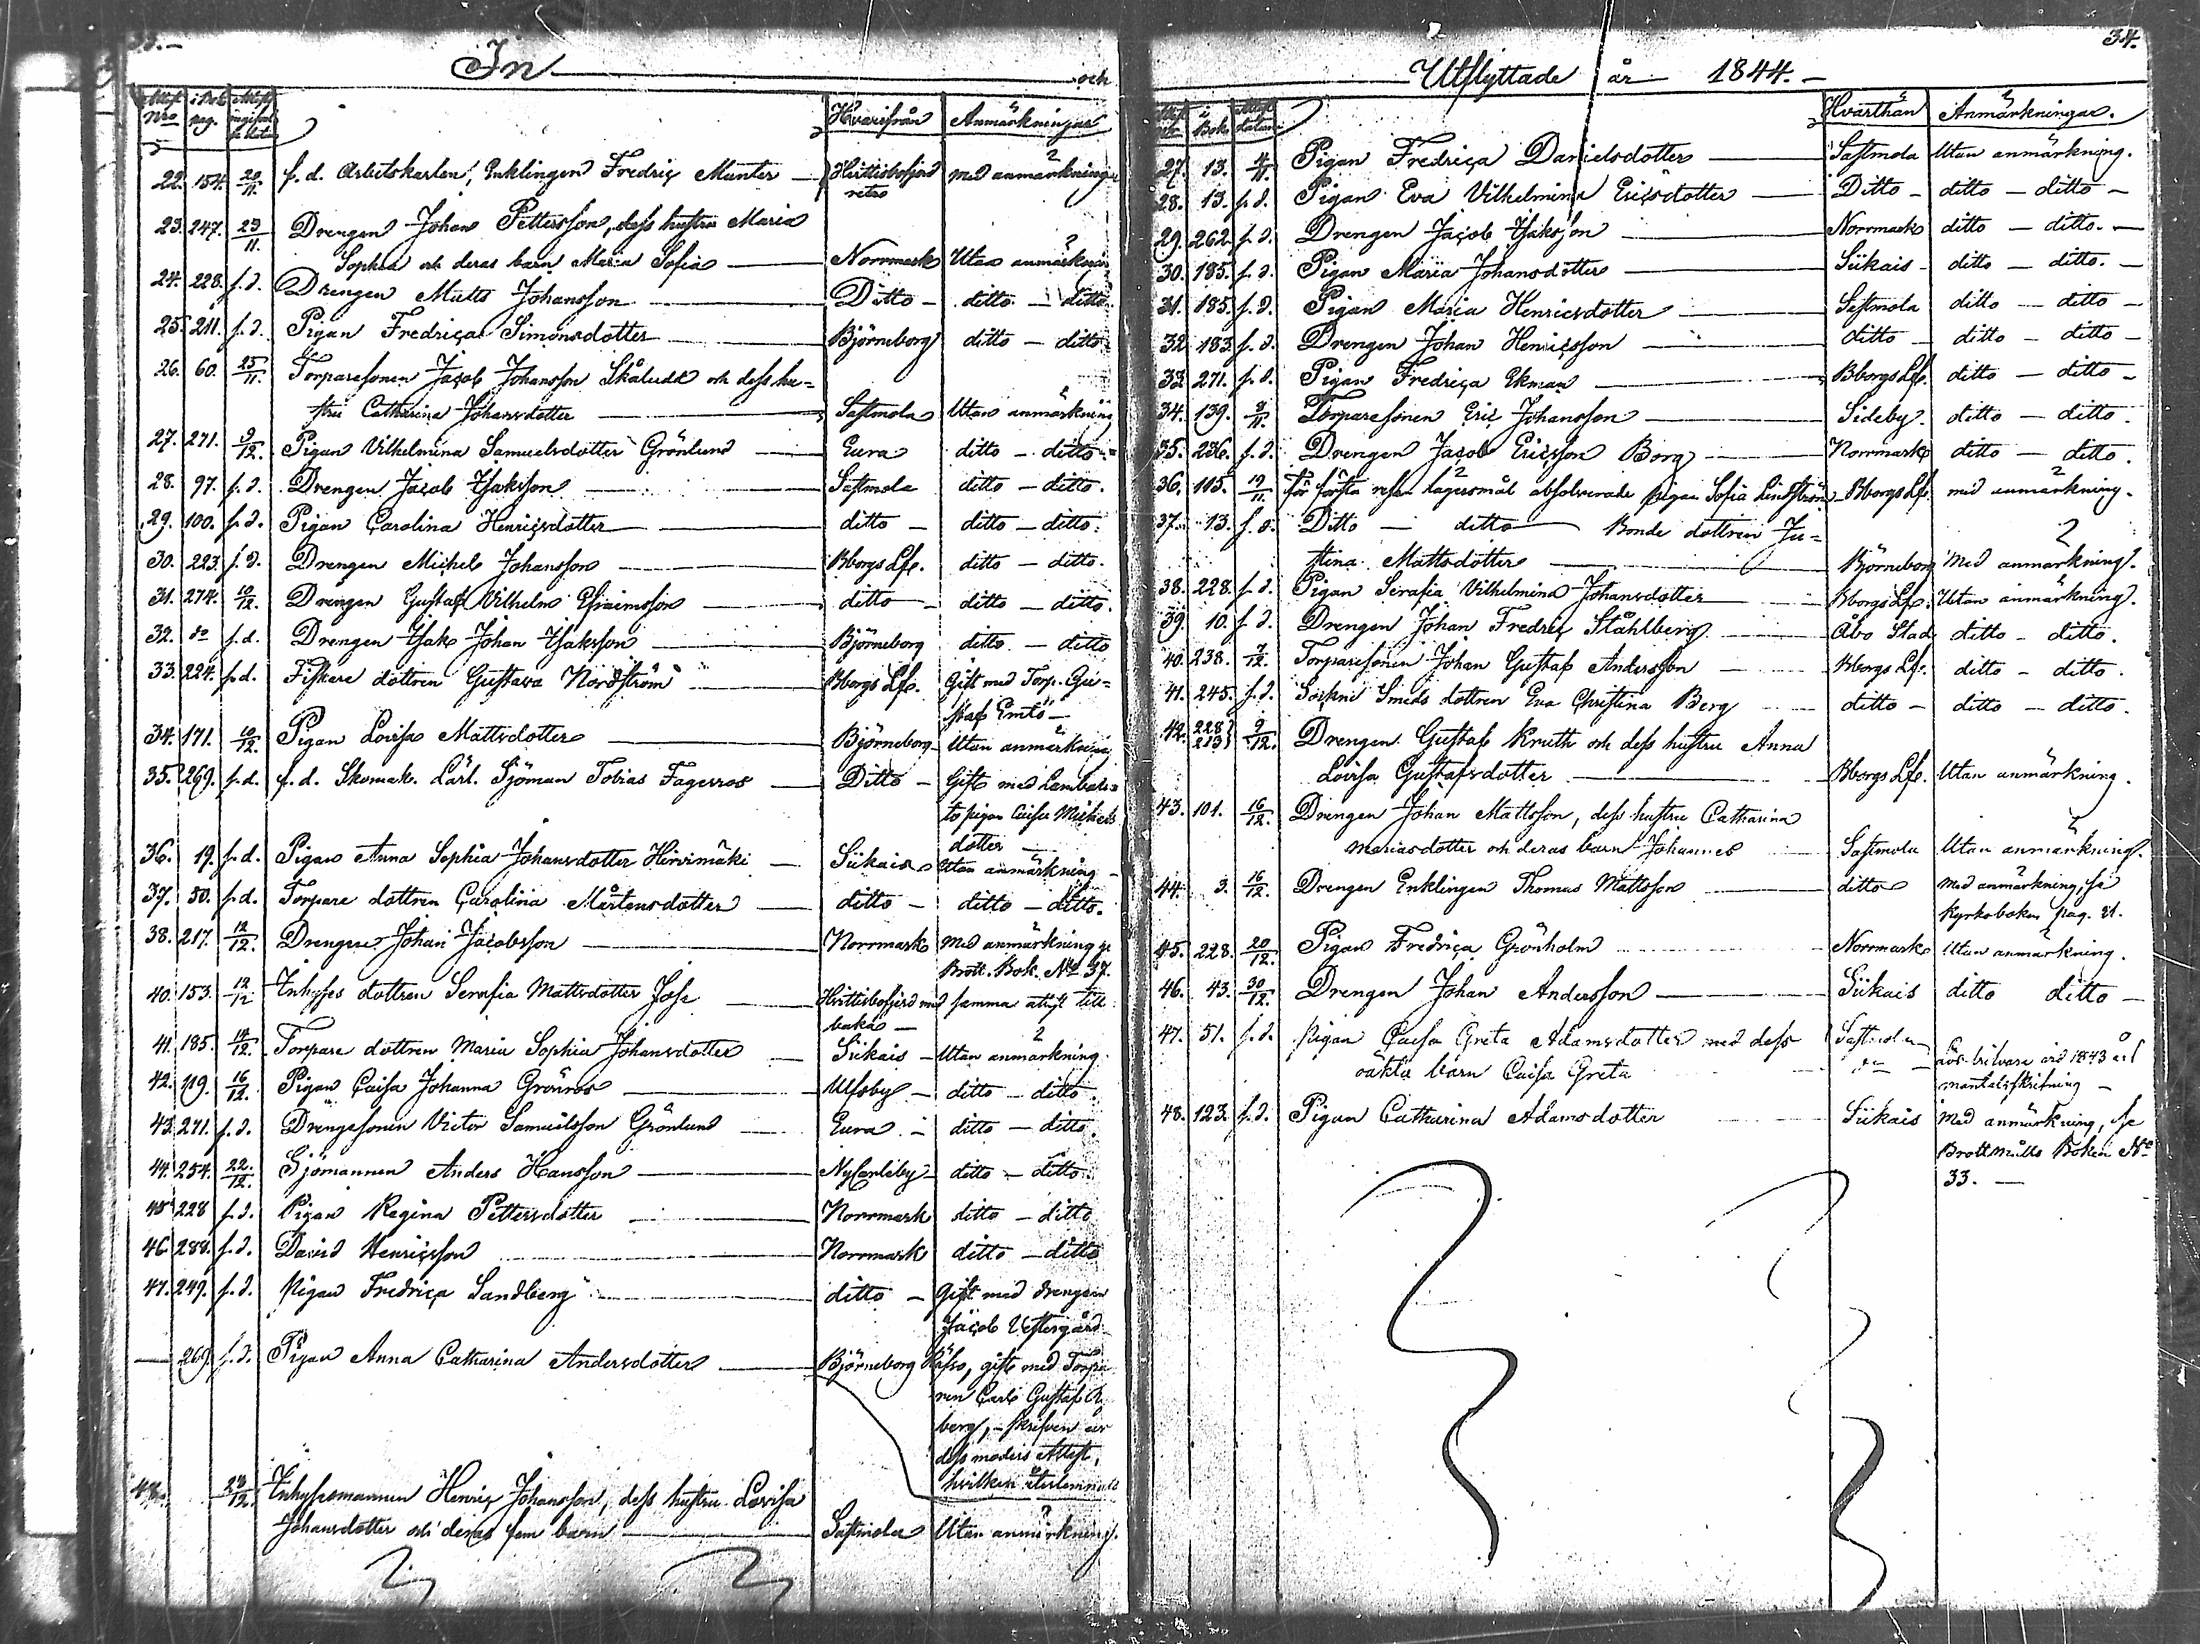 In och
Attest Nro i Bok pag. Hvarifrån Anmärkningar
22. 154. 20/11. f. d. Arbetskarlen, Enklingen Fredric Munter Hvittisbofjärd med anmärkning
retro
23. 247. 23/11. Drengen Johan Pettersson, dess hustru Maria
Sophia och deras barn Maria Sofia Norrmark Utan anmärkning
24. 228. s. d. Drengen Matts Johansson Ditto ditto ditto
25. 211. s. d. Pigan Fredrica Simonsdotter Björneborg ditto ditto
26. 60. 25/11. Torparesonen Jacob Johansson och dess hu-
stru Catharina Johansdotter Sastmola Utan anmärkning
27. 271. 9/12. Pigan Vilhelmina Samuelsdotter Grönlund Eura ditto ditto
28. 97. s. d. Drengen Jacob Isaksson Sastmola ditto ditto.
29. 100. s. d. Pigan Carolina Henricsdotter ditto ditto ditto.
30. 223. s. d. Drengen Michel Johansson Bborgs Lfs. ditto ditto.
31. 274. 10/12. Drengen Gustaf Vilhelm Efraimsson ditto ditto ditto.
32. do s. d. Drengen Isak Johan Isaksson Björneborg ditto ditto
33. 224. s. d. Fiskare dottren Gustava Nordström Bborgs Lfs. Gift med Torp. Gu-
staf
34. 171. 10/12. Pigan Lovisa Mattsdotter Björneborg Utan anmärkning
35. 269. s. d. f. d. Skomak. Lärl. Sjöman Tobias Fagerroos Ditto Gift med
pigan Caisa Michels
dotter
36. 19. s. d. Pigan Anna Sophia Johansdotter Hirvimäki Siikais Utan anmärkning
37. 50. s. d. Torpare dottren Carolina Mårtensdotter ditto ditto ditto.
38. 217. 12/12. Drengen Johan Jacobsson Norrmark Med anmärkning
Brott. Bok. No 37.
40. 153. 12/12 Inhyses dottren Serafia Mattsdotter Hvittisbofjärd med samma attest till
baka
41. 185. 14/12. Torpare dottren Maria Sophia Johansdotter Siikais Utan anmärkning.
42. 119. 16/12. Pigan Caisa Johanna Grönroos Ulfsby ditto ditto
43. 271. s. d. Drengesonen Victor Samuelsson Grönlund Eura ditto ditto.
44. 254. 22/12. Sjömannen Anders Hansson NyCarleby ditto ditto.
45 228 s. d. Pigan Regina Pettersdotter Norrmark ditto ditto
46. 288. s. d. David Henricsson Norrmark ditto ditto
47. 249. s. d. Pigan Fredrica Sandberg ditto Gift med drengen
Jacob Vestergård
269. s. d. Pigan Anna Catharina Andersdotter Björneborg Räfsö, gift med Torpa-
ren Carl Gustaf
berg, skrifven
dess moders Attest,
hvilken återlemnats
48. 28/12. Inhysesmannen Henric Johansson, dess hustru Lovisa
Johansdotter och deras fem barn Sastmola Utan anmärkning.
34.
Utflyttade år 1844.
i Bok Hvarthän Anmärkningar.
27. 13. 4/11. Pigan Fredrica Danielsdotter Sastmola Utan anmärkning.
28. 13. s. d. Pigan Eva Vilhelmina Ericsdotter Ditto ditto ditto
29. 262. s. d. Drengen Jacob Isaksson Norrmark ditto ditto.
30. 185. s. d. Pigan Maria Johansdotter Siikais ditto ditto.
31. 185. s. d. Pigan Maria Henricsdotter Sastmola ditto ditto
32 183. s. d. Drengen Johan Henricsson ditto ditto ditto
33 271. s. d. Pigan Fredrica Ekman Bborgs Lfs. ditto ditto
34. 139. 8/11. Torparesonen Eric Johansson Sideby. ditto ditto.
35. 236. s. d. Drengen Jacob Ericsson Borg Norrmark ditto ditto.
36. 105. 19/11. För första resan lägersmål absolverade pigan Sofia Lindström Bborgs Lfs. med anmärkning.
37. 13. s. d. Ditto ditto Bonde dottren Ju-
stina Mattsdotter Björneborg Med anmärkning.
38. 228. s. d. Pigan Serafia Vilhelmina Johansdotter Bborgs Lfs. Utan anmärkning.
39. 10. s. d. Drengen Johan Fredric Ståhlberg Åbo Stad ditto ditto.
40. 238. 7/12. Torparesonen Johan Gustaf Andersson Bborgs Lfs. ditto ditto.
41. 245. s. d. Sockne Smeds dottren Eva Christina Berg ditto ditto ditto.
42. 228 213 9/12. Drengen Gustaf Kruth och dess hustru Anna
Lovisa Gustafsdotter Bborgs Lfs. Utan anmärkning.
43. 101. 16/12. Drengen Johan Mattsson, dess hustru Catharina
Mariasdotter och deras barn Johannes Sastmola Utan anmärkning.
44. 3. 16/12. Drengen Enklingen Thomas Mattsson ditto Med anmärkning, se
Kyrkoboken pag. 21.
45. 228. 20/12. Pigan Fredrica Grönholm Norrmark Utan anmärkning.
46. 43. 30/12. Drengen Johan Andersson Siikais ditto ditto
47. 51. s. d. Pigan Caisa Greta Adamsdotter med dess Sastmola
oäkta barn Caisa Greta 1843 års
mantalsskrifning
48. 123. s. d. Pigan Catharina Adamsdotter Siikais Med anmärkning, se
Brottmåls Boken No
33.